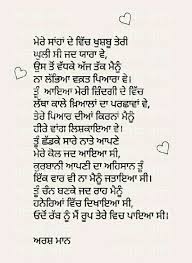 ਮੇਰੇ ਸਾਂਹਾਂ ਦੇ ਵਿੱਚ ਖੁਸ਼ਬੂ ਤੇਰੀ
ਘੁਲੀ ਸੀ ਜਦ ਯਾਰਾ ਵੇ,
ਉਸ ਤੋਂ ਵੱਧਕੇ ਅੱਜ ਤੱਕ ਮੈਨੂੰ
ਨਾ ਲੱਭਿਆ ਵਕ਼ਤ ਪਿਆਰਾ ਵੇ।
ਤੂੰ ਆਇਆ ਮੇਰੀ ਜ਼ਿੰਦਗੀ ਦੇ ਵਿੱਚ
ਲੱਥਾ ਕਾਲੇ ਖ਼ਿਆਲਾਂ ਦਾ ਪਰਛਾਵਾਂ ਵੇ,
ਤੇਰੇ ਪਿਆਰ ਦੀਆਂ ਕਿਰਨਾਂ ਮੈਨੂੰ
ਹੀਰੇ ਵਾਂਗ ਲਿਸ਼ਕਾਇਆ ਵੇ।
ਤੂੰ ਛੱਡਕੇ ਸਾਰੇ ਨਾਤੇ ਆਪਣੇ
ਮੇਰੇ ਕੋਲ ਜਦ ਆਇਆ ਸੀ,
ਕੁਰਬਾਨੀ ਆਪਣੀ ਦਾ ਅਹਿਸਾਨ ਤੂੰ
ਇੱਕ ਵਾਰ ਵੀ ਨਾ ਮੈਨੂੰ ਜਤਾਇਆ ਸੀ।
ਤੂੰ ਚੰਨ ਬਣਕੇ ਜਦ ਰਾਹ ਮੈਨੂੰ
ਹਨੇਰਿਆਂ ਵਿੱਚ ਦਿਖਾਇਆ ਸੀ,
ਓਦੋਂ ਰੱਬ ਨੂੰ ਮੈਂ ਰੂਪ ਤੇਰੇ ਵਿਚ ਪਾਇਆ ਸੀ।
ਅਰਸ਼ ਮਾਨ